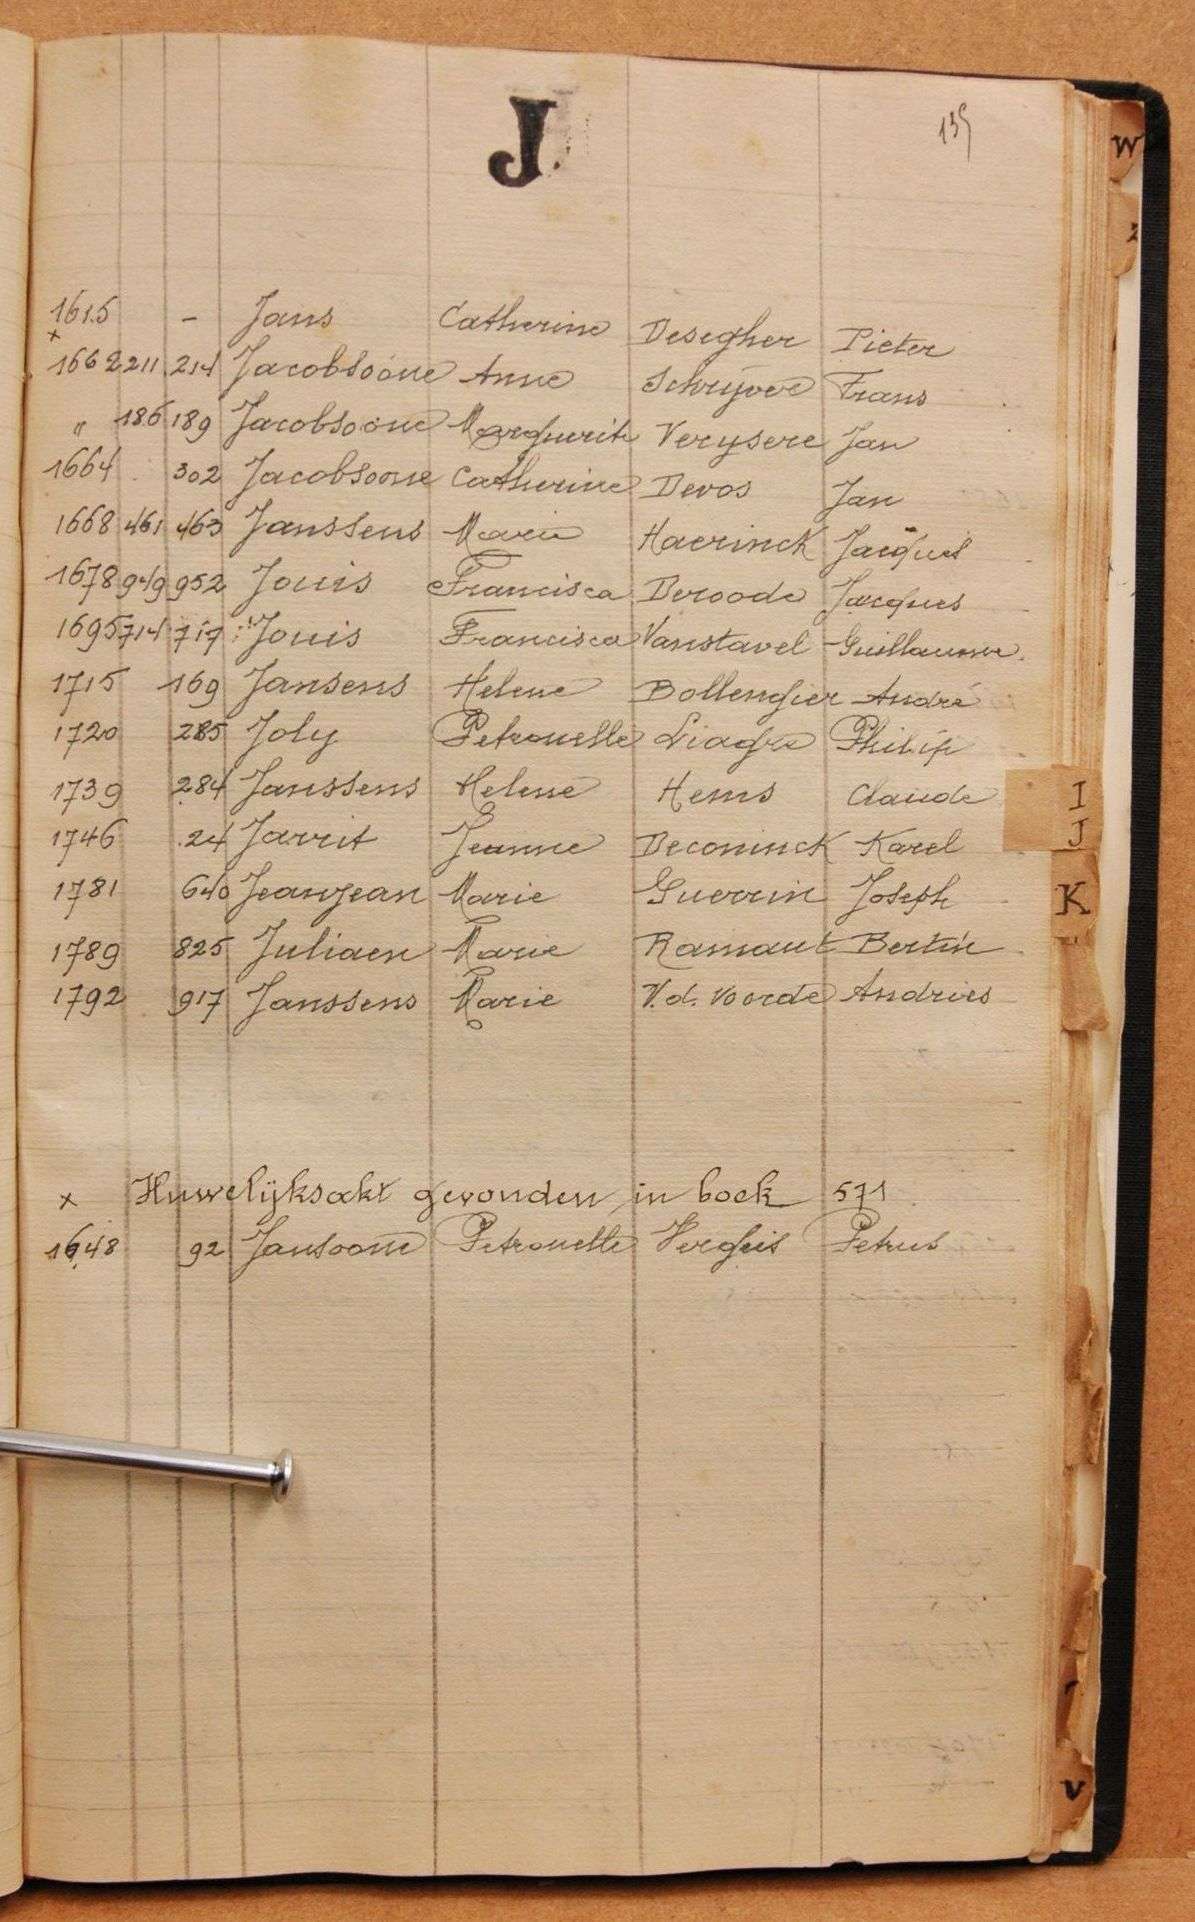 J
135
1615 - Jans Catherine Desegher Pieter
x
1662 211 214 Jacobsoone Anne Schrijvere Frans
" 186 189 Jacobsoone Marguerite Verysere Jan
1664 302 Jacobsoone Catherine Devos Jan
1668 461 463 Janssens Marie Haerinck Jacques
1678 949 952 Jouis Francisca Deroode Jacques
1695 714 717 Jouis Francisca Vanstavel Guillaume
1715 169 Jansens Helene Bollengier André
1720 285 Joly Petronelle Liagre Philip
1739 284 Janssens Helene Hems Claude
1746 24 Jarrit Jeanne Deconinck Karel
1781 640 Jeanjean Marie Guerrin Joseph
1789 825 Juliaen Marie Ramaut Bertin
1792 917 Janssens Marie V.d. Voorde Andries
x Huwelijksakt gevonden in boek 571
1648 92 Jansoone Petronelle Vergheis Petrus
W
Z
I
J
K
V